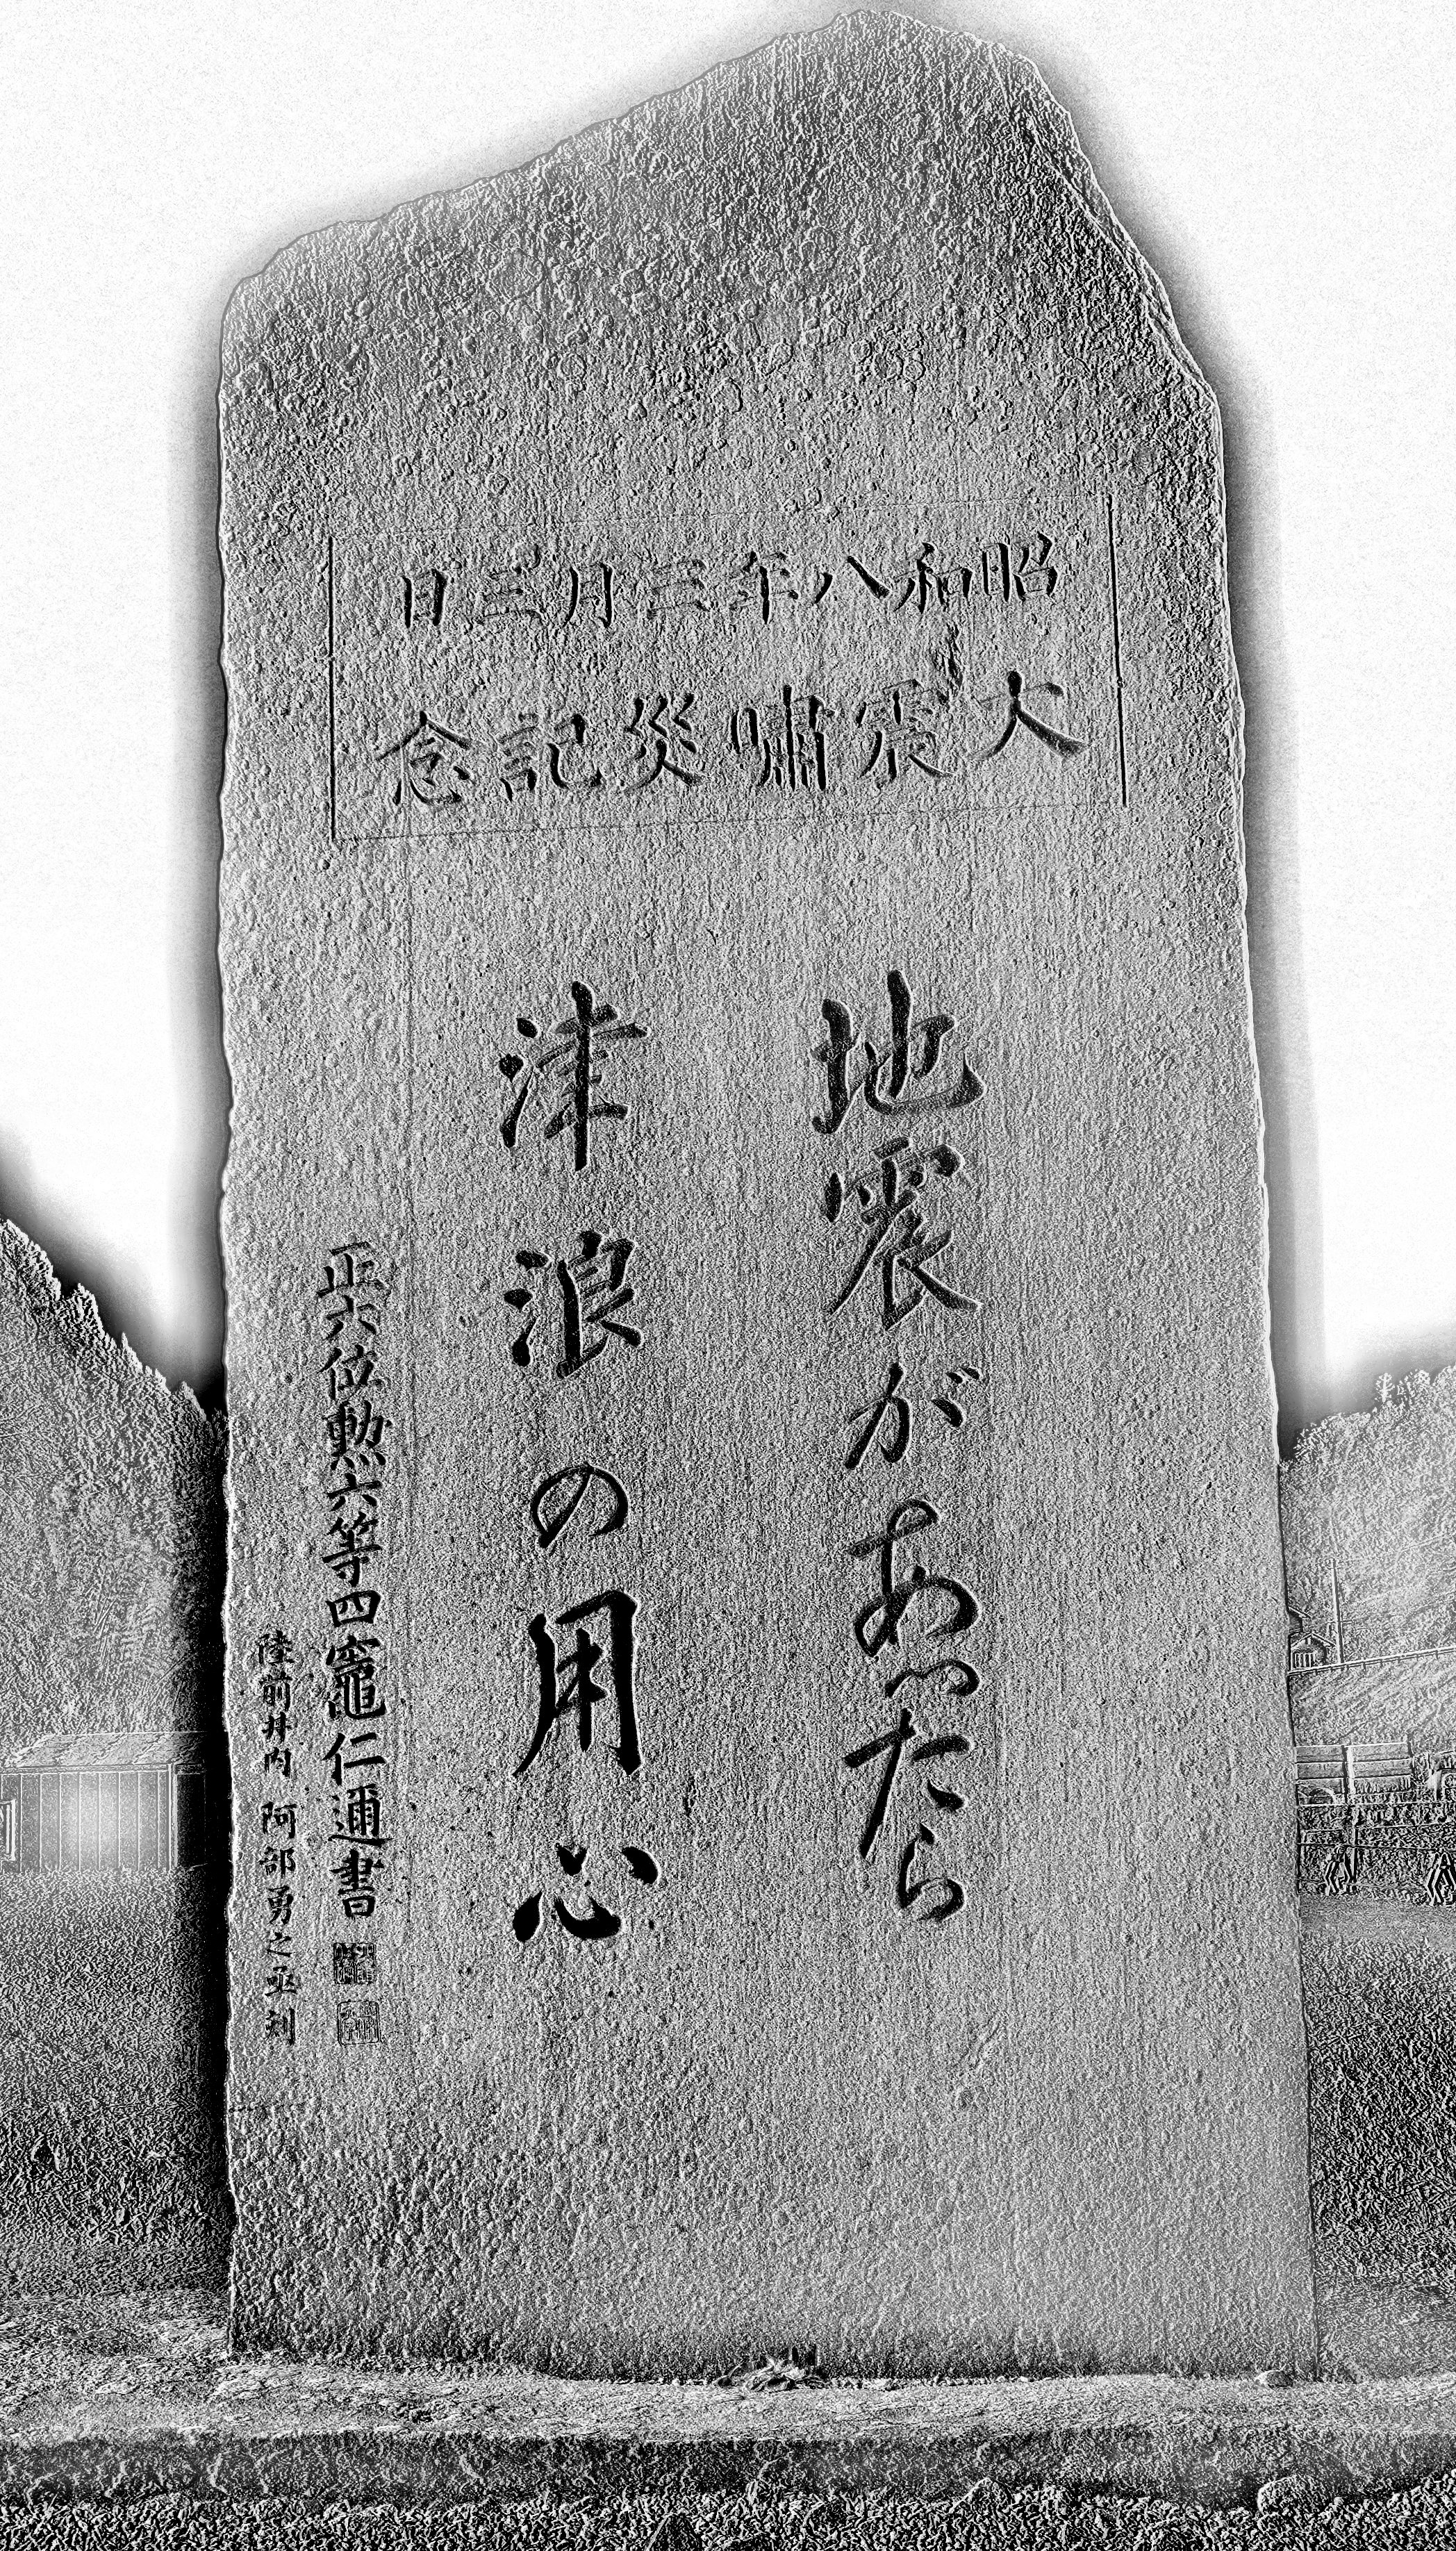 昭和八年三月三日
大震嘯災記念
地震があつたら
津浪の用心
正六位勲六等四竈仁邇書
陸前井内 阿部勇之丞刻